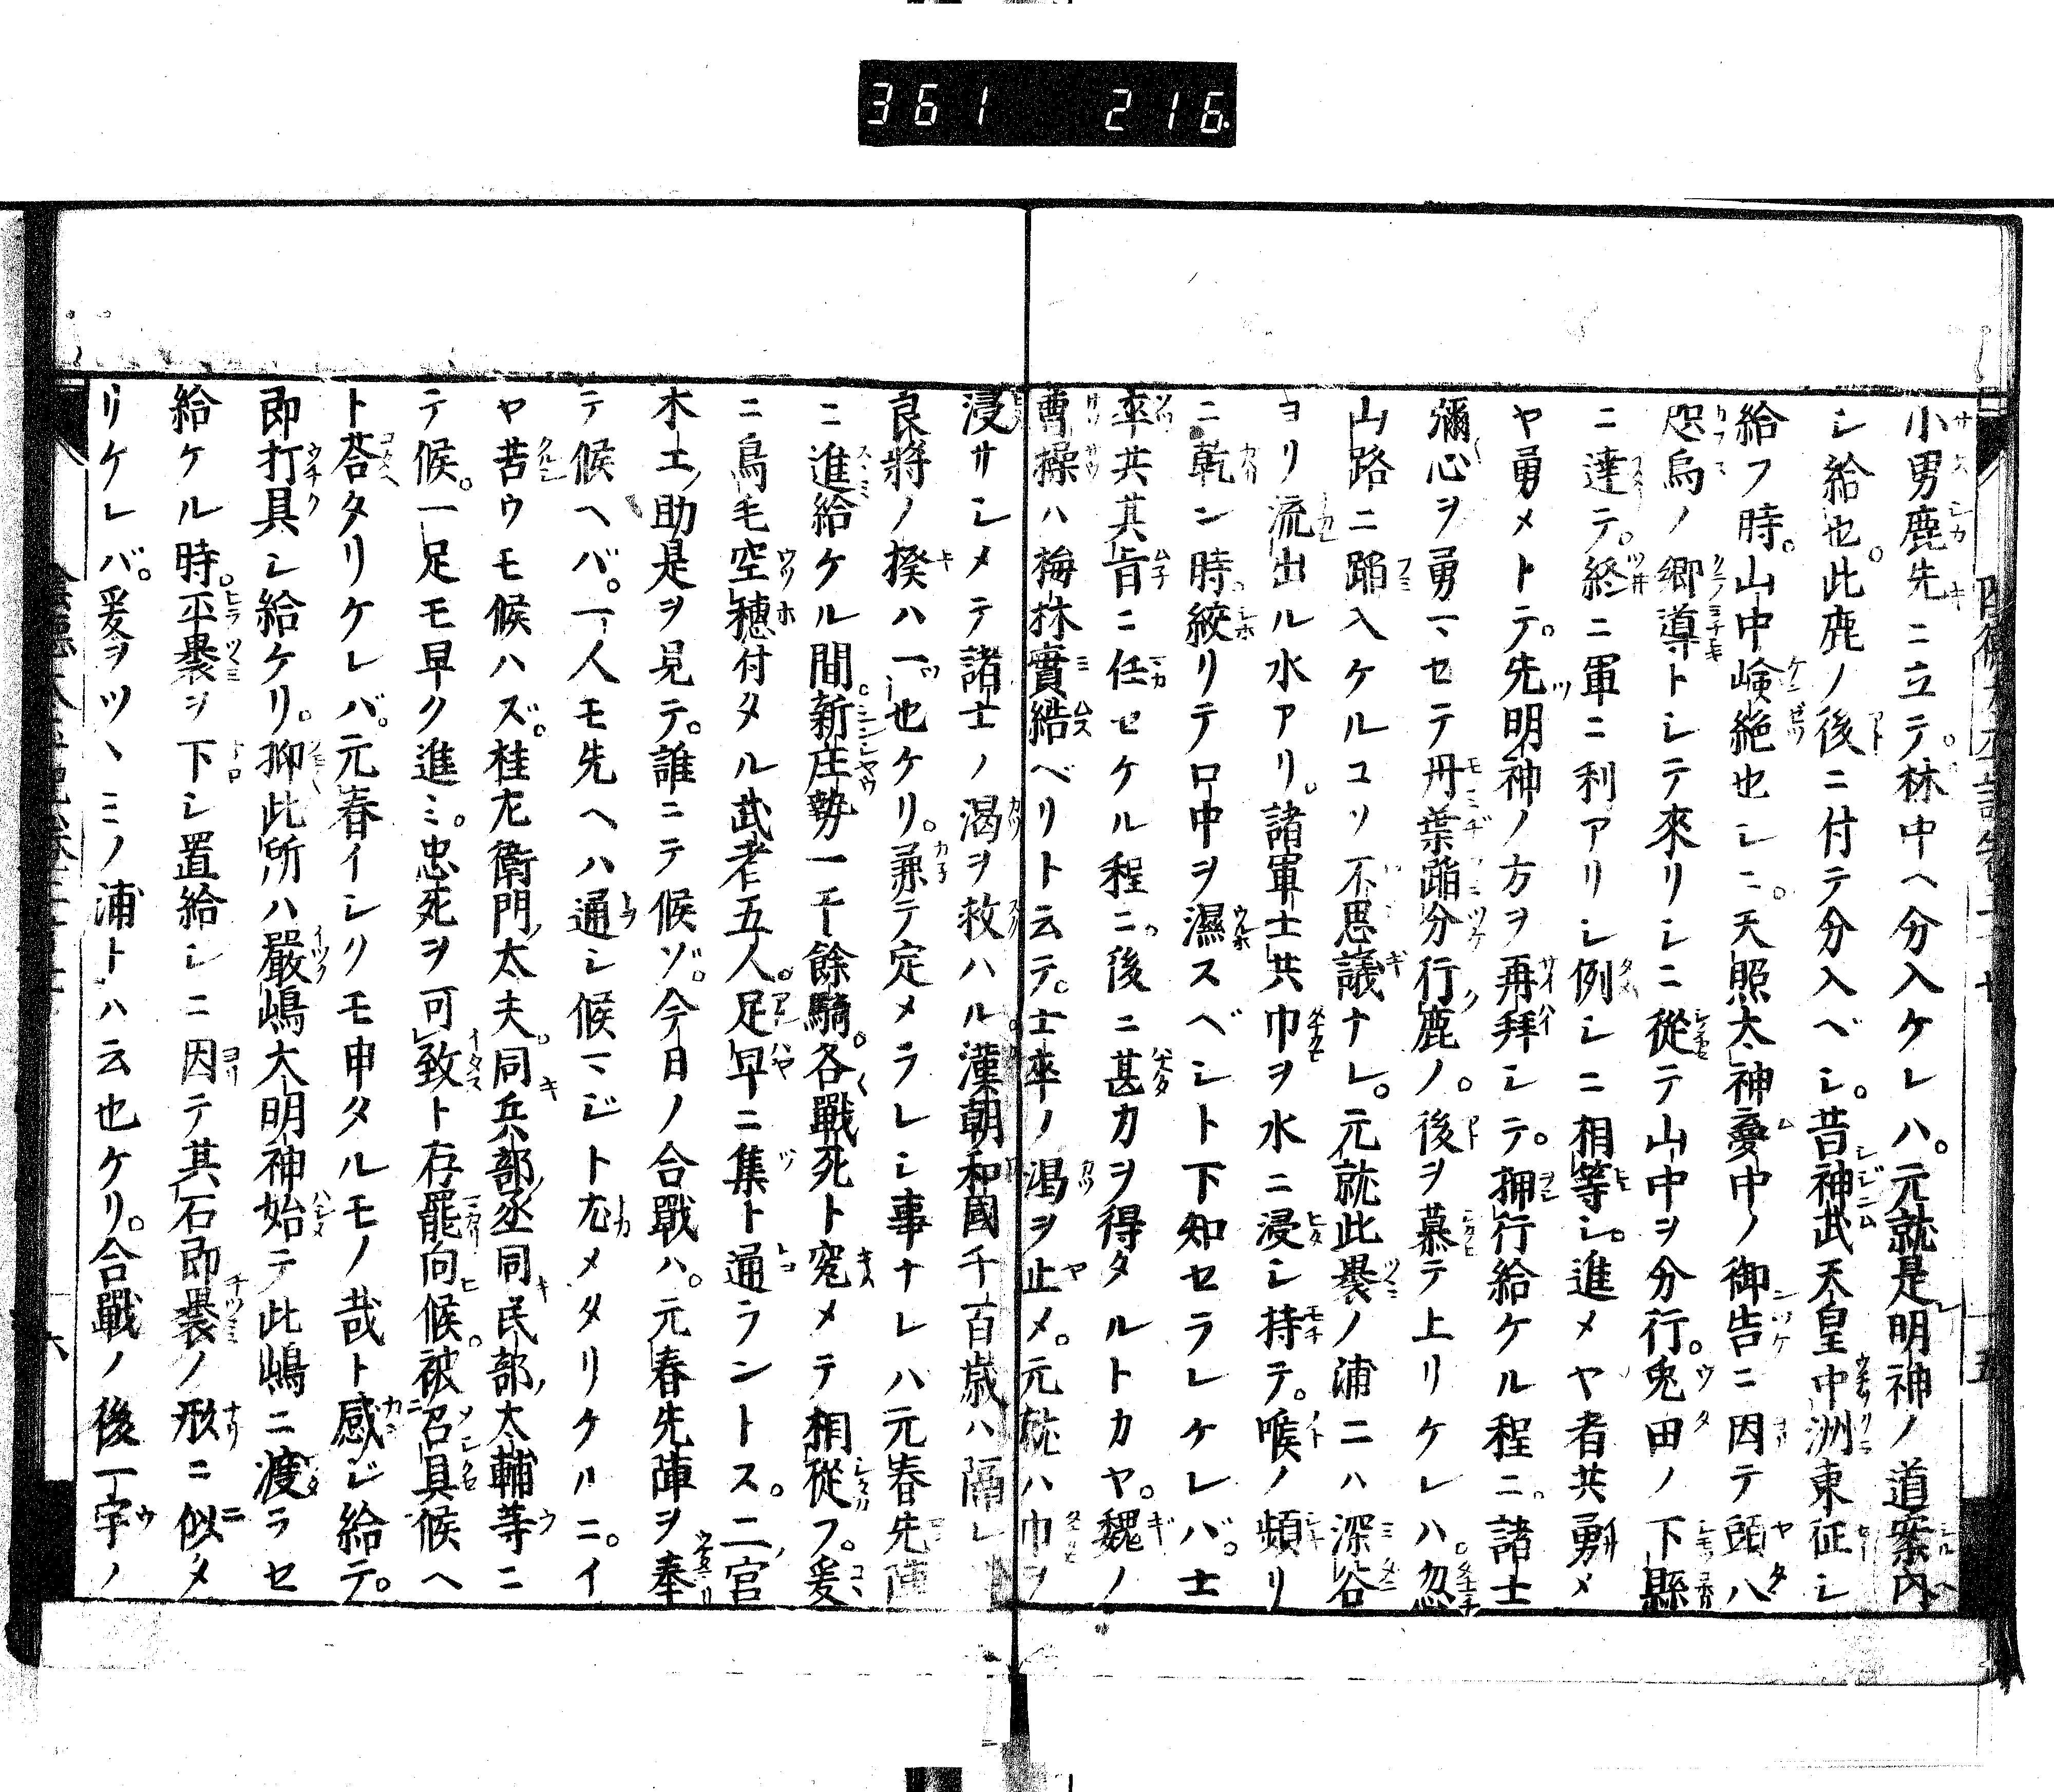 361 216
小男鹿先ニ立テ。林中ヘ分入ケレハ。元就是明神ノ道案内
シ給也。此鹿ノ後ニ付テ分入ベシ。昔神武天皇中洲東征シ
給フ時。山中嶮絶也シニ。天照太神夢中ノ御告ニ因テ頭八
咫烏ノ郷導トシテ來リシニ從テ山中ヲ分行。兎田ノ下縣
ニ達テ。終ニ軍ニ利アリシ例シニ相等シ。進メヤ者共勇メ
ヤ勇メトテ。先明神ノ方ヲ再拜シテ。押行給ケル程ニ。諸士
彌心ヲ勇マセテ丹葉蹈分行鹿ノ。後ヲ慕テ上リケレハ。忽
山路ニ蹈入ケルコソ不思議ナレ。元就此褁ノ浦ニハ深谷
ヨリ流出ル水アリ。諸軍士共巾ヲ水ニ浸シ持テ。喉ノ頻リ
ニ乾ン時。絞リテ口中ヲ濕スベシト下知セラレケレバ。士
卒共其旨ニ任セケル程ニ。後ニ甚力ヲ得タルトカヤ。魏ノ
曹操ハ梅林實結ベリト云テ。士卒ノ渇ヲ止メ。元就ハ巾ヲ
浸サシメテ諸士ノ渇ヲ救ハル。漢朝和國千百歳ハ隔レ
良將ノ揆ハ一也ケリ。兼テ定メラレシ事ナレハ元春先陣
ニ進給ケル間。新庄勢一千餘騎。各戰死ト究メテ相從フ。爰
ニ鳥毛空穗付タル武者五人。足早ニ集ト通ラントス。二宮
木工助是ヲ見テ。誰ニテ候ゾ。今日ノ合戰ハ。元春先陣ヲ奉
テ候ヘバ。一人モ先ヘハ通シ候マジト尤メタリケルニ。イ
ヤ苦ウモ候ハズ。桂左衛門太夫。同兵部丞同民部太輔等ニ
テ候。一足モ早ク進ミ。忠死ヲ可致ト存罷向候。被召具候ヘ
ト荅タリケレバ。元春イシクモ申タルモノ哉ト感ジ給テ。
即打具シ給ケリ。抑此所ハ嚴嶋大明神始テ此嶋ニ渡ラセ
給ケル時。平褁ヲ下シ置給シニ因テ其石即褁ノ形ニ似タ
リケレバ。爰ヲツヽミノ浦トハ云也ケリ。合戰ノ後一宇ノ